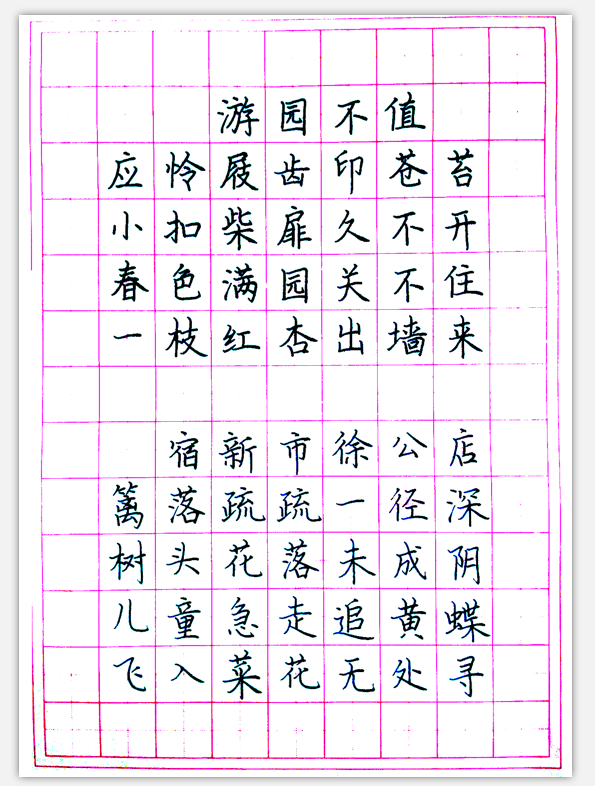 游园不值
应怜屐齿印苍苔
小扣柴扉久不开
春色满园关不住
一枝红杏出墙来
宿新市徐公店
篱落疏疏一径深
树头花落未成阴
儿童急走追黄蝶
飞入菜花无处寻